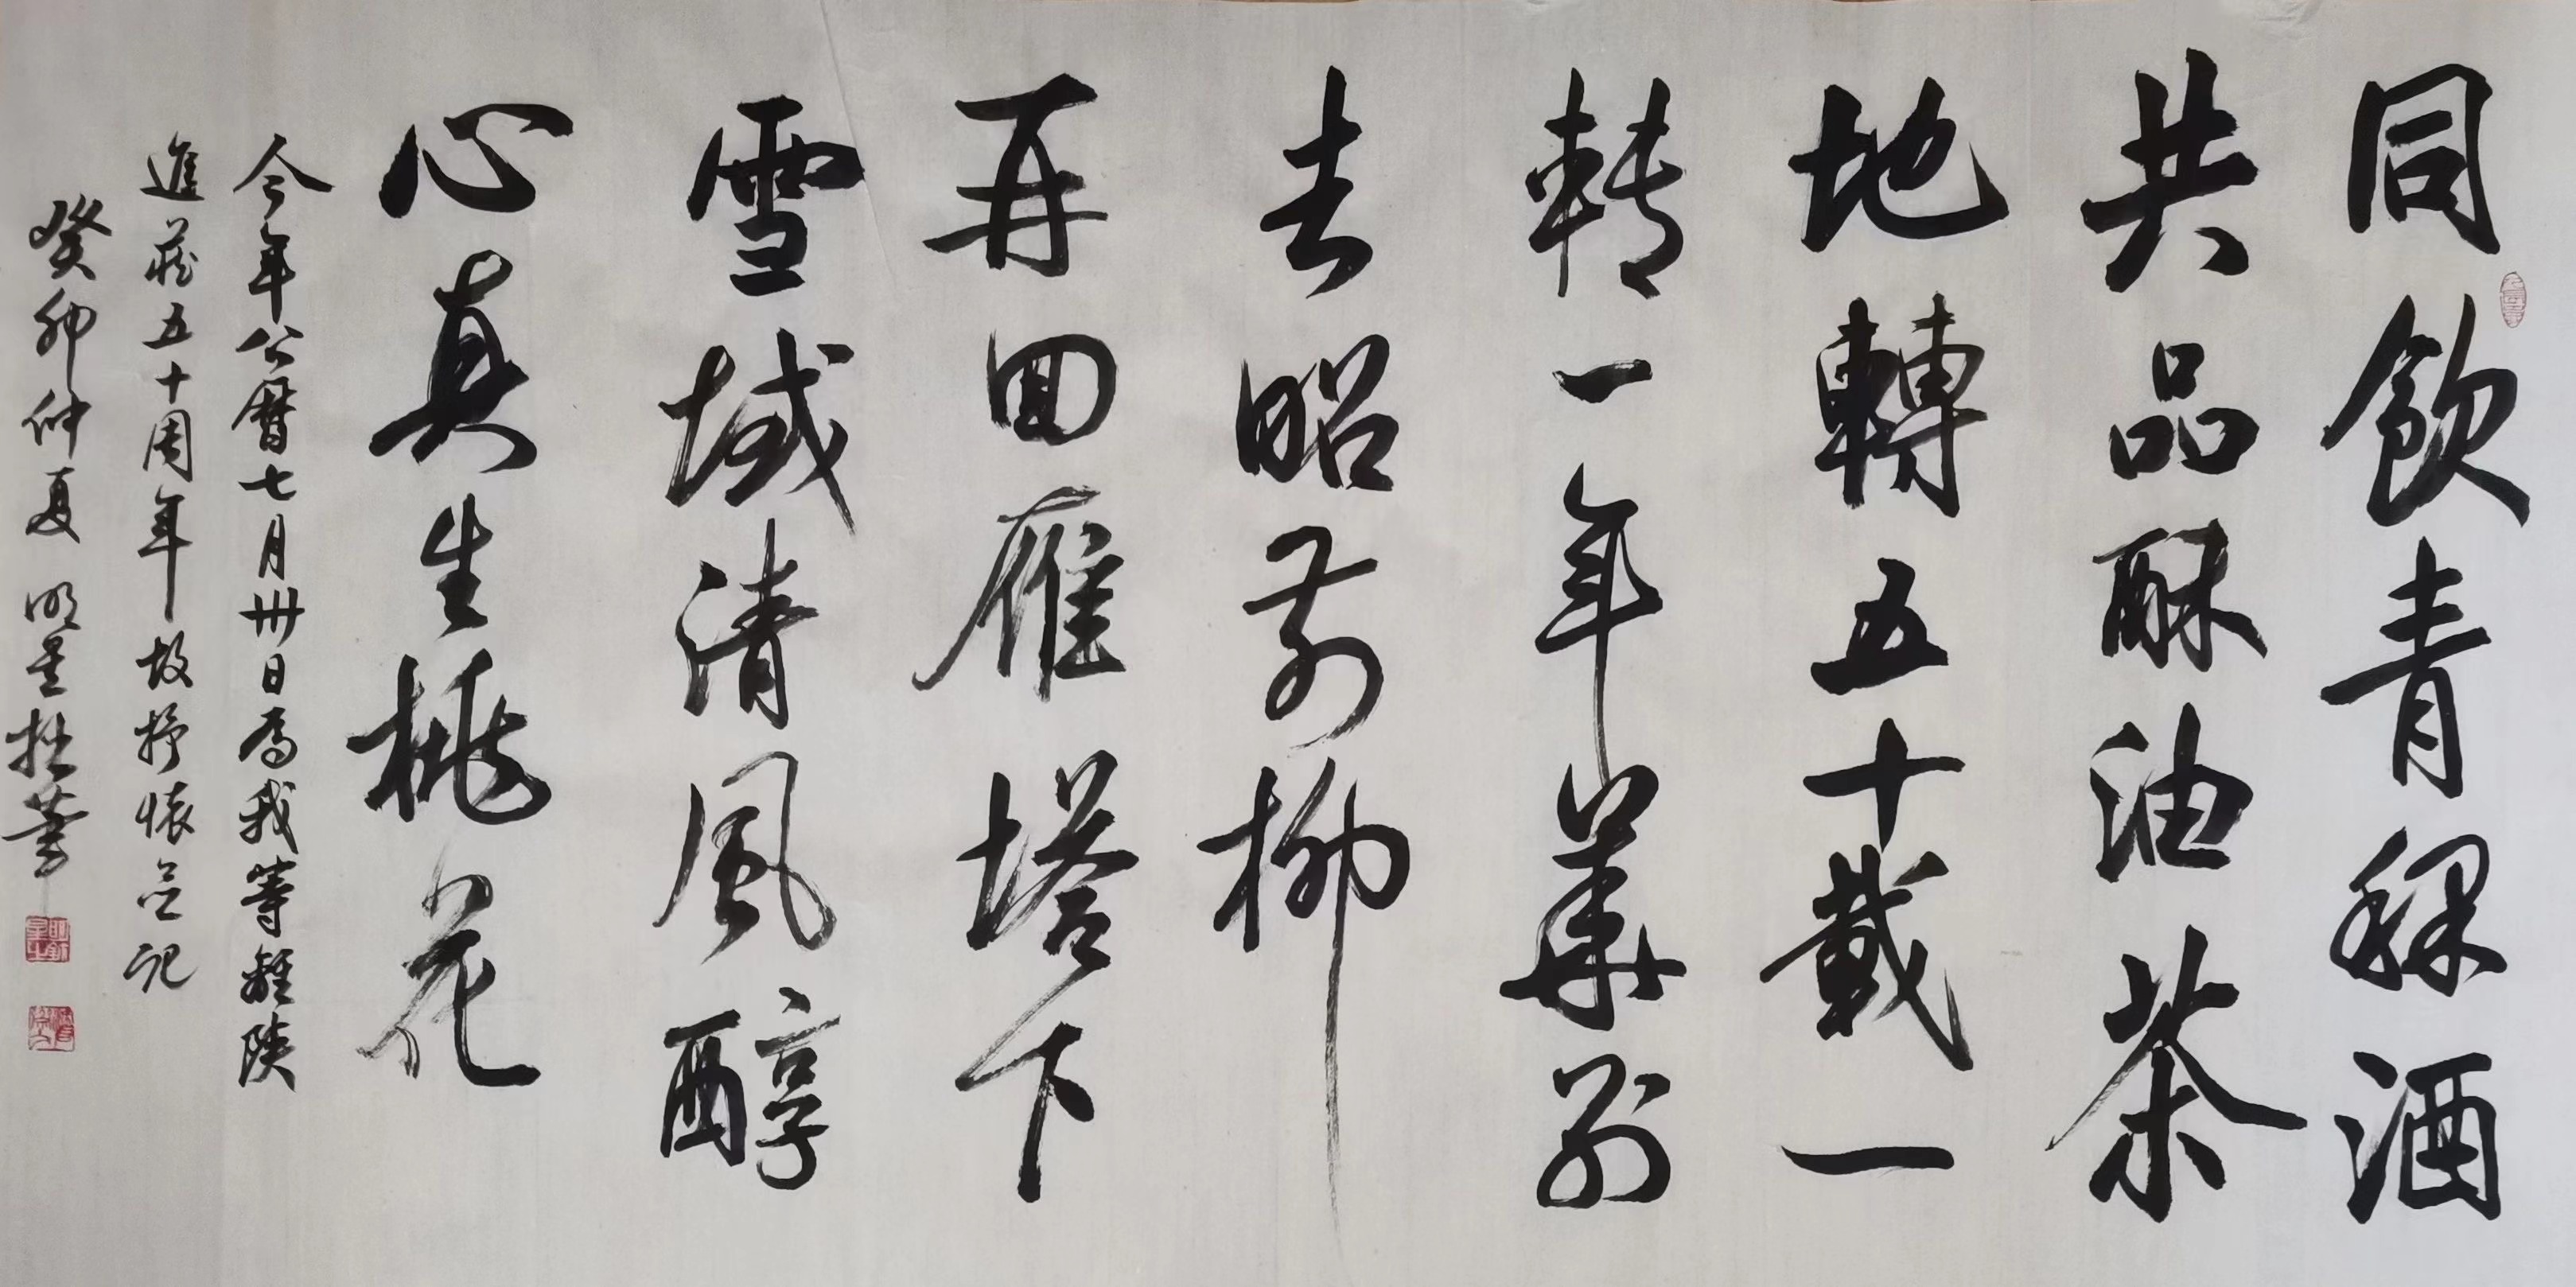 同飲青稞酒
共品酥油茶
地轉五十載一
轉一年華別
去昭前柳
再回雁塔下
雪域清風醇
心真生桃花
今年公曆七月卅日為我等離陝
進藏五十周年故抒懷並記
癸卯仲夏 明星拙筆